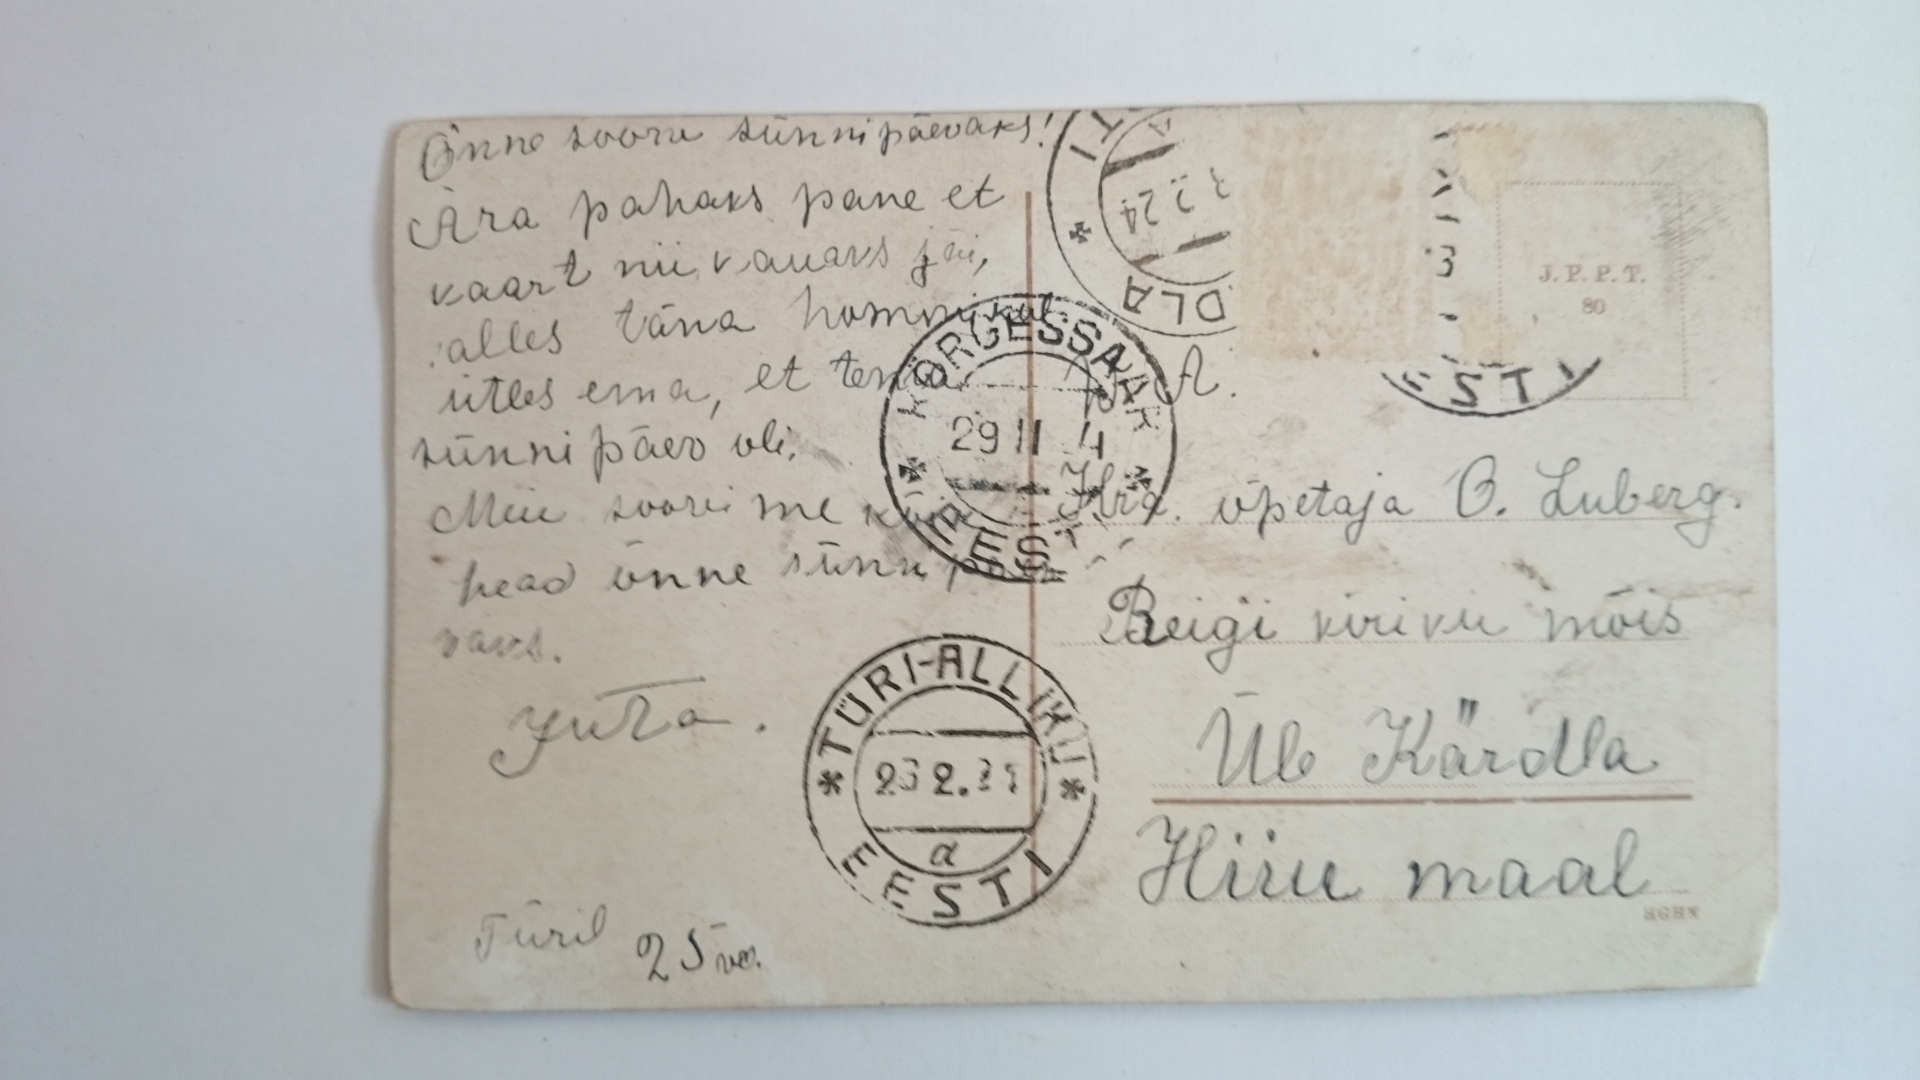 Õnne soovu sünnipäevaks!
Ära pahaks pane et
kaart nii kauaks jäi,
alles täna hommikul
ütles ema, et tema
sünnipäev oli.
Meie soovime kõik
head õnne sünnipäe
vaks.
Juta.
Türil 25 ve.
DLA
2.24
ESTI
J. P. P. T.
80
KÕRGESSAAR
29 II 4
EESTI
TÜRI-ALLIKU
2.
a
EESTI
A.
Hra. õpetaja O. Luberg.
Reigi kiriku mõis
Üle Kärdla
Hiiu maal
HGHN